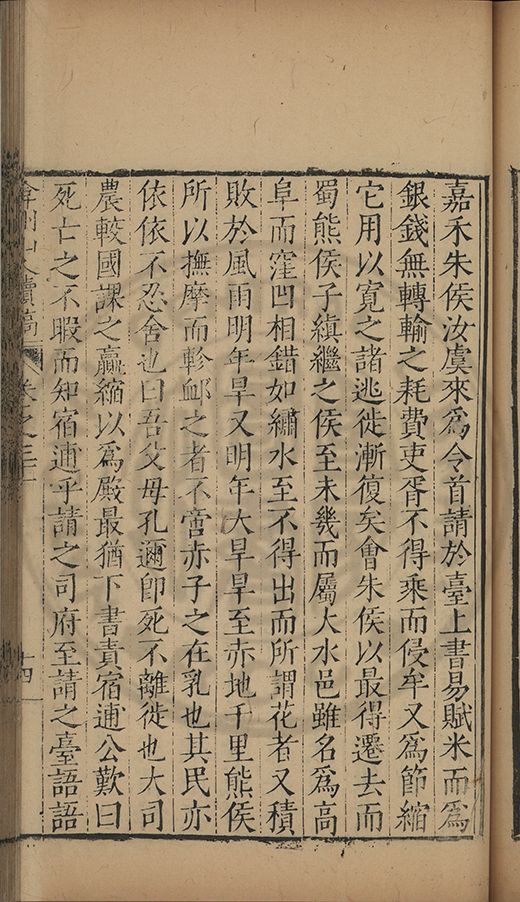 嘉禾朱侯汝虞來爲令首請於臺上書易賦米而爲
銀錢無轉輸之耗費吏胥不得乘而侵牟又爲節縮
它用以寬之諸逃徙漸復矣會朱侯以最得遷去而
蜀熊侯子縝繼之侯至未幾而屬大水邑雖名爲高
阜而窪凹相錯如繡水至不得出而所謂花者又積
敗於風雨明年旱又明年大旱旱至赤地千里熊侯
所以撫摩而軫䘏之者不啻赤子之在乳也其民亦
依依不忍舍也曰吾父母孔邇卽死不離徙也大司
農較國課之贏縮以爲殿最猶下書責宿逋公歎曰
死亡之不暇而知宿逋乎請之司府至請之臺語語
弇州山人續稿
卷之三十
十四